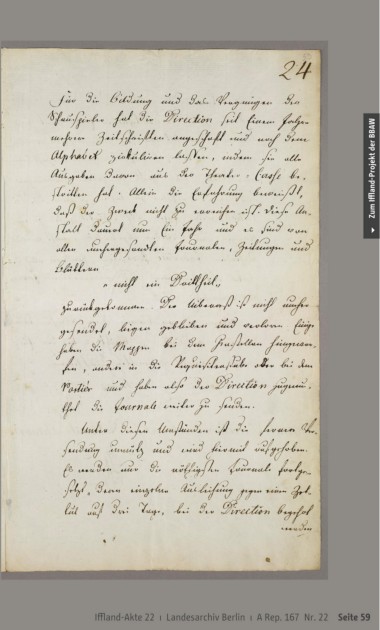 24
Für die Bildung und das Vergnügen der
Schauspieler hat die Direction seit einem Jahre
mehrere Zeitschriften angeschaft und nach dem
Alphabet zirkuliren lassen, indem sie alle
Ausgaben davon aus der Theater-Casse be-
stritten hat. Allein die Erfahrung beweißt,
daß der Zweck nicht zu erreichen ist. Diese An-
stalt dauert nun ein Jahr und es sind von
allen umhergesandten Journalen, Zeitungen und
Blättern
nicht ein Dritttheil
zurückgekommen. Der Ueberrest ist nicht umher
gesendet, liegen geblieben und verloren. Einige
haben die Mappen bei dem Kastellan
andere in die Requisitenstube oder bei dem
Portier und haben also der Direction zugemu-
thet die Journale weiter zu senden.
Unter diesen Umständen ist die fernere Ver-
sendung unnütz und wird hiermit aufgehoben.
Es werden nur die nöthigsten Journale fortge-
setzt, deren einzelne Ausleihung gegen einen Zet-
tel auf drei Tage, bei der Direction begehrt
werden
▸ Zum Iffland-Projekt der BBAW
Iffland-Akte 22 | Landesarchiv Berlin | A Rep. 167 Nr. 22 Seite 59